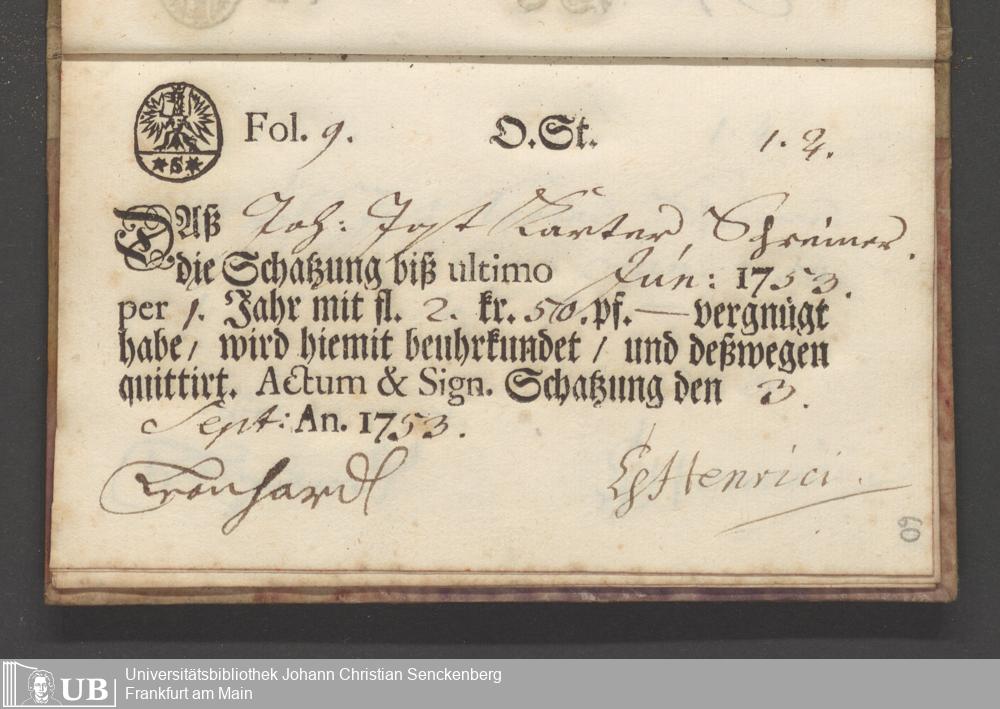 *S*
Fol. 9. O.St. 1. 2.
DAß Joh: Jost Karter, Schreiner.
die Schatzung biß ultimo Jun: 1753.
per 1. Jahr mit fl. 2. kr. 50. pf. — vergnügt
habe/ wird hiemit beuhrkundet / und deßwegen
quittirt. Actum & Sign. Schatzung den 3.
Sept: An. 1753.
Leonhardi
Henrici.
60
UB
Universitätsbibliothek Johann Christian Senckenberg
Frankfurt am Main